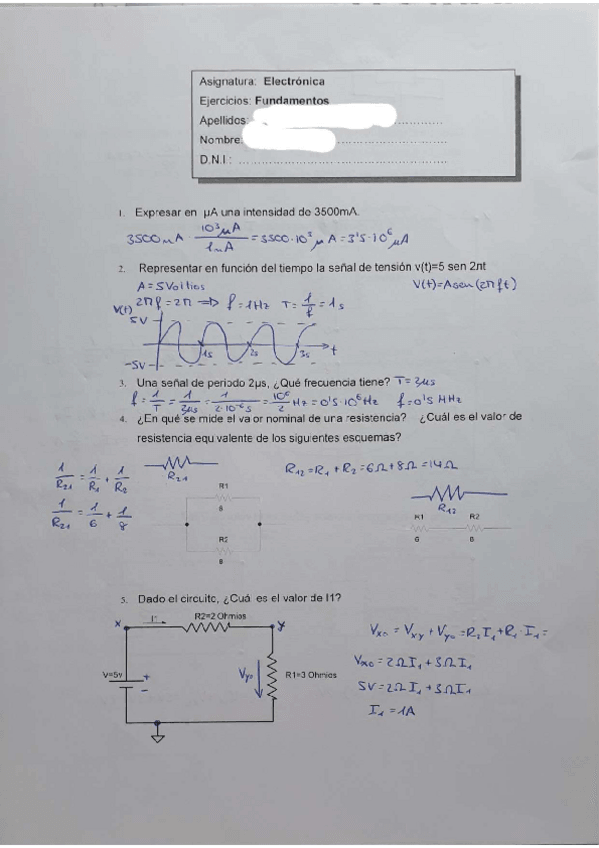 Asignatura: Electrónica
Ejercicios: Fundamentos
Apellidos:
Nombre:
D.N.I :
1. Expresar en µA una intensidad de 3500mA.
3500mA · 10³µA / 1mA = 3500·10³ µA = 3'5·10⁶ µA
2. Representar en función del tiempo la señal de tensión v(t)=5 sen 2πt
A = 5 Voltios V(t)=A sen(2πft)
2πf = 2π => f = 1Hz T = 1/f = 1s
V(t)
5V
1s 2s 3s t
-5V
3. Una señal de periodo 2µs, ¿Qué frecuencia tiene? T=2µs
f = 1/T = 1/2µs = 1/2·10⁻⁶s = 10⁶/2 Hz = 0'5·10⁶Hz f=0'5 MHz
4. ¿En qué se mide el va or nominal de una resistencia? ¿Cuál es el valor de
resistencia equ valente de los siguientes esquemas?
1/R21 = 1/R1 + 1/R2
R21
R12 = R1 + R2 = 6Ω + 8Ω = 14Ω
1/R21 = 1/6 + 1/8
R1
6
R2
8
R12
R1 R2
6 8
5. Dado el circuito, ¿Cuá es el valor de I1?
x I1 R2=2 Ohmios y
V=5v + -
Vyo
R1=3 Ohmios
Vxo = Vxy + Vyo = R2 I1 + R1 · I1 =
Vxo = 2Ω I1 + 3Ω I1
5V = 2Ω I1 + 3Ω I1
I1 = 1A